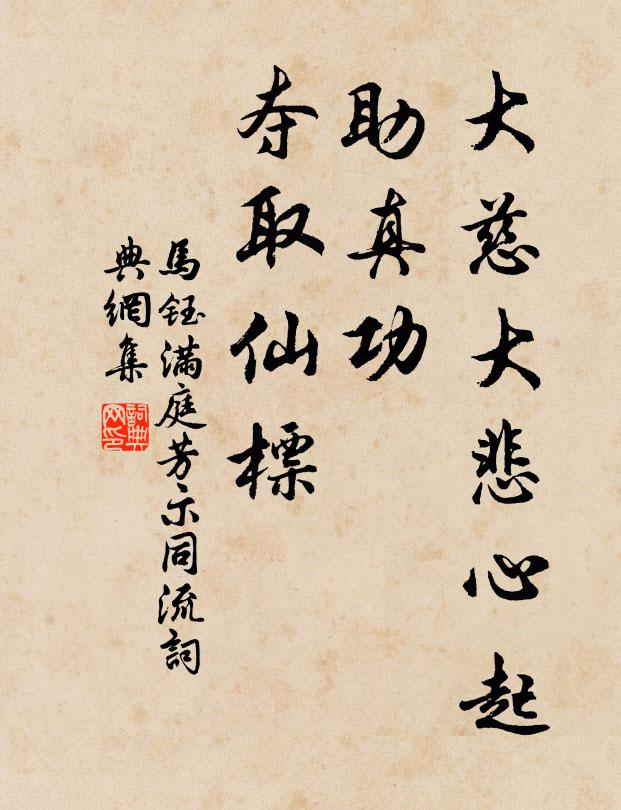 大慈大悲心起
助真功
夺取仙標
馬鈺滿庭芳示同流詞
典網集
詞典網印